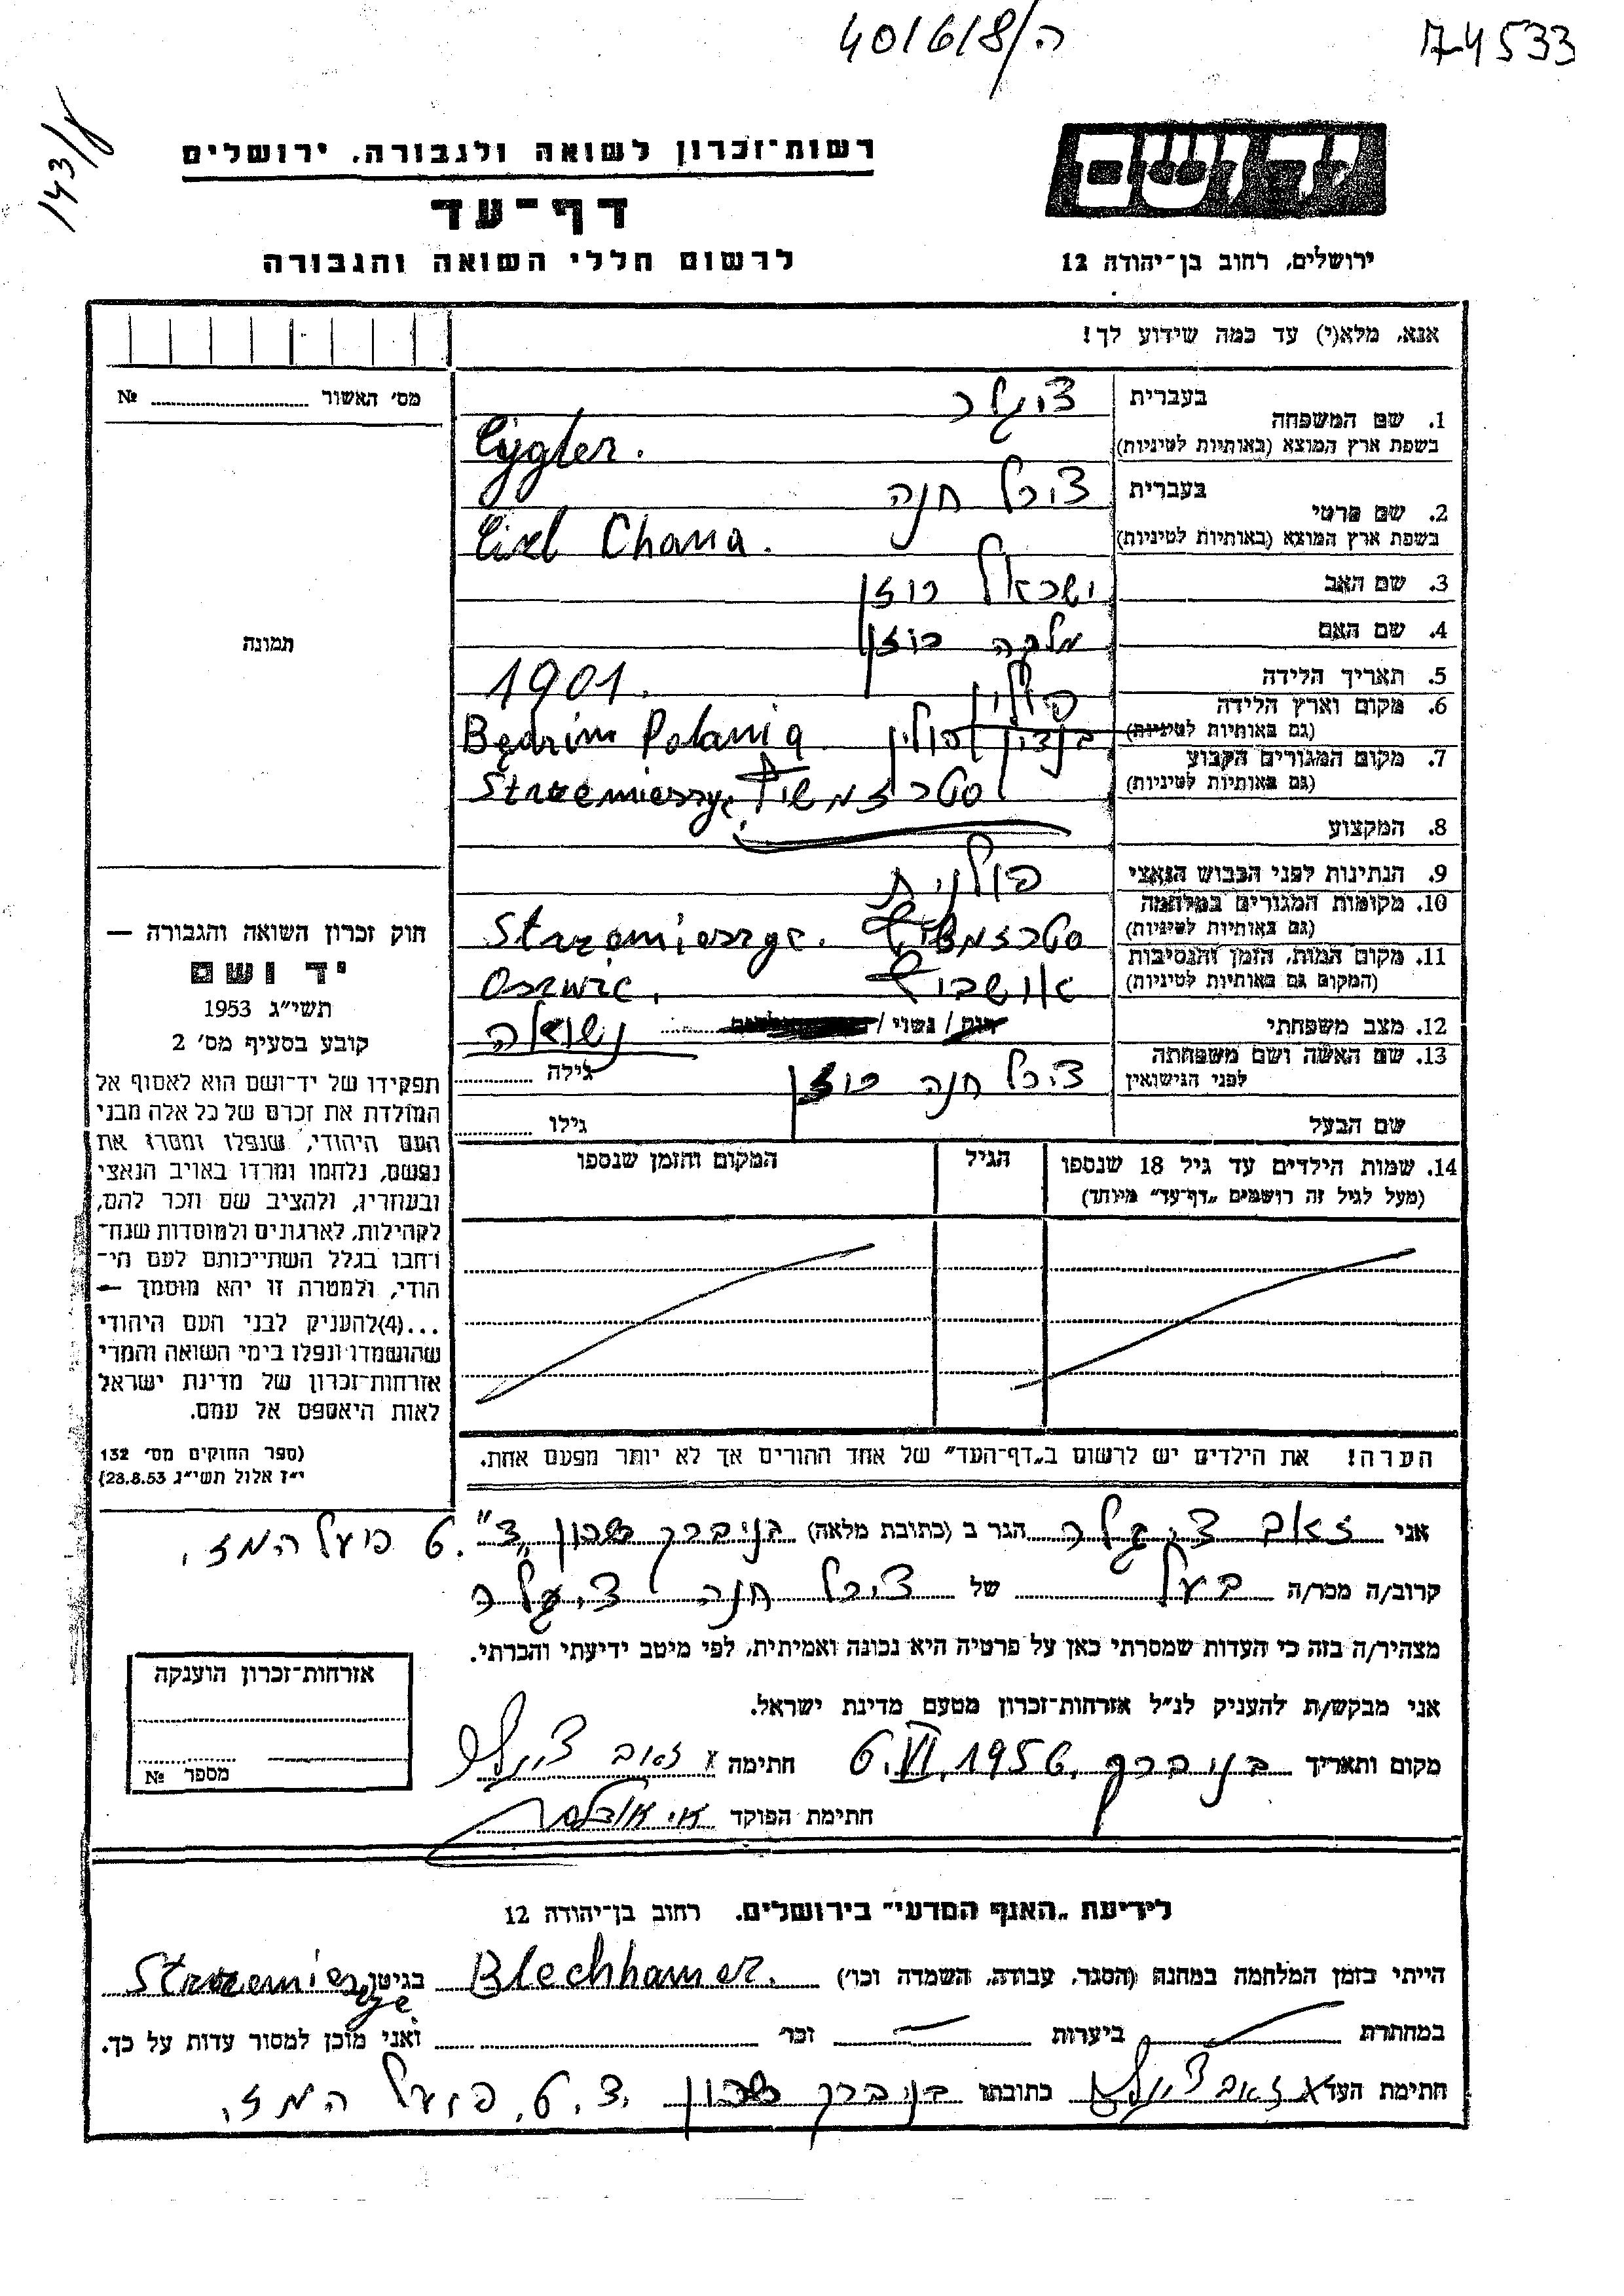 40/6/8/ה
74533
143/8
יד ושם
רשות־זכרון לשואה ולגבורה. ירושלים
דף־עד
לרשום חללי השואה והגבורה
ירושלים, רחוב בן־יהודה 12
אנא, מלא(י) עד כמה שידוע לך!
מס׳ האשור № 
תמונה
1. שם המשפחה בעברית ציגלר
בשפת ארץ המוצא (באותיות לטיניות) Cygler.
2. שם פרטי בעברית צירל חנה
בשפת ארץ המוצא (באותיות לטיניות) Chana.
3. שם האב ישראל רוזן
4. שם האם מלכה רוזן
5. תאריך הלידה 1901.
6. מקום וארץ הלידה פולין
(גם באותיות לטיניות) בנדין פולין Będzin Polania
7. מקום המגורים הקבוע
(גם באותיות לטיניות) Strzemieszyce
8. המקצוע
9. הנתינות לפני הכבוש הנאצי פולנית
10. מקומות המגורים במלחמה
(גם באותיות לטיניות) Strzemieszyce.
11. מקום המות, הזמן והנסיבות
(המקום גם באותיות לטיניות) אושביץ
12. מצב משפחתי נשוי / נשואה
13. שם האשה ושם משפחתה
לפני הנישואין צירל חנה רוזן גילה
שם הבעל גילו
14. שמות הילדים עד גיל 18 שנספו הגיל המקום והזמן שנספו
(מעל לגיל זה רושמים „דף־עד״ מיוחד)
הערה! את הילדים יש לרשום ב„דף־העד״ של אחד ההורים אך לא יותר מפעם אחת.
חוק זכרון השואה והגבורה —
יד ושם
תשי״ג 1953
קובע בסעיף מס׳ 2
תפקידו של יד־ושם הוא לאסוף אל
המולדת את זכרם של כל אלה מבני
העם היהודי, שנפלו ומסרו את
נפשם, נלחמו ומרדו באויב הנאצי
ובעוזריו, ולהציב שם וזכר להם,
לקהילות, לארגונים ולמוסדות שנח־
רבו בגלל השתייכותם לעם הי־
הודי, ולמטרה זו יהא מוסמך —
...(4)להעניק לבני העם היהודי
שהושמדו ונפלו בימי השואה והמרי
אזרחות־זכרון של מדינת ישראל
לאות היאספם אל עמם.
(ספר החוקים מס׳ 132
י״ז אלול תשי״ג 28.8.53)
אני זאב ציגלר הגר ב (כתובת מלאה) בני ברק שכון „צ״ 6. פועל המז.
קרוב/ה מכר/ה בעל של צירל חנה ציגלר
מצהיר/ה בזה כי העדות שמסרתי כאן על פרטיה היא נכונה ואמיתית, לפי מיטב ידיעתי והכרתי.
אני מבקש/ת להעניק לנ״ל אזרחות־זכרון מטעם מדינת ישראל.
מקום ותאריך בני ברק, 6.VI.1956 חתימה x זאב ציגלר
חתימת הפוקד
אזרחות־זכרון הוענקה
מספר №
לידיעת „האגף המדעי״ בירושלים. רחוב בן־יהודה 12
הייתי בזמן המלחמה במחנה (הסגר, עבודה, השמדה וכו׳) Blechhamer. בגיטו Strzemieszyce.
במחתרת ביערות וכו׳ ואני מוכן למסור עדות על כך.
חתימת העד x זאב ציגלר כתובתו בני ברק שכון צ. 6. פועל המז.